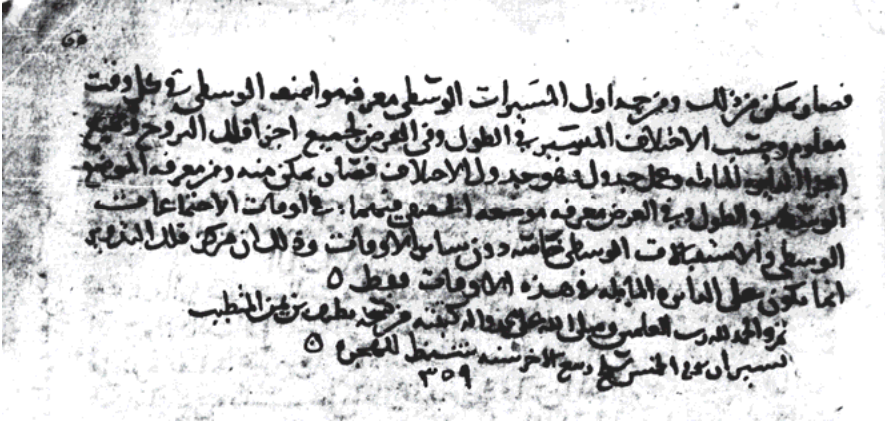 فصار يمكن من ذلك ومن جداول المسيرات الوسطى معرفة مواضعه الوسطى في كل وقت
معلوم وحسب الاختلاف المتيسر في الطول وفي العرض لجميع اجزا فلك البروج ولجميع
اجزا المايله وعمل جدول وهو جدول الاختلاف فصار يمكن منه ومن معرفه الموضع
الوسط في الطول وفي العرض معرفه موضعه الحقيقى فيهما في اوقات الاجتماعات
الوسطى والاستقبالات الوسطى خاصه دون ساير الاوقات وذلك ان مركز فلك التدوير
انما يكون على الدايره المايله في هذه الاوقات فقط ٥
تم والحمد لله رب العلمين وصلى الله على محمد واله كتبته من نسخه بن يحيى المتطبب
ربيع الاخر سنه شنط للهجره ٥
٣٥٩